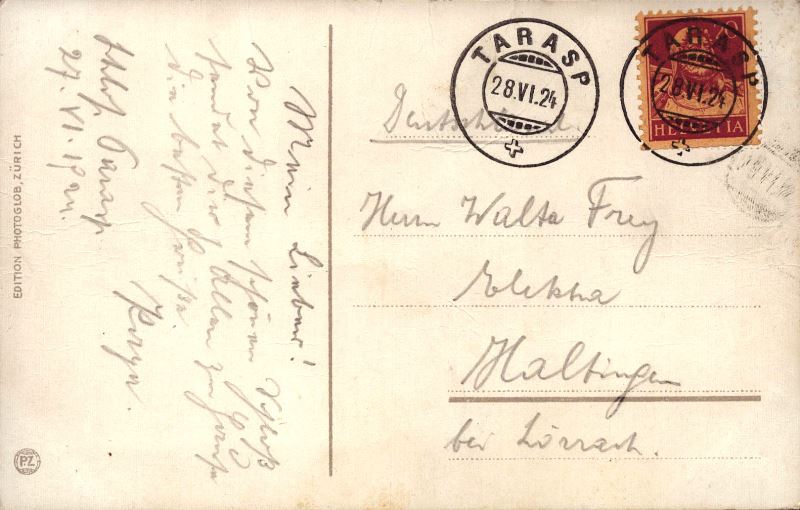 Mein Lieber!
Von diesem schönen Schloß
sendet Dir & Allen zu Hause
die besten Grüße.
Schloß Tarasp.
27. VI. 1924.
EDITION PHOTOGLOB, ZÜRICH
P.Z.
TARASP
28.VI.24
TARASP
28.VI.24
20
HELVETIA
Deutschland.
Herrn Walter Frey
Elektra
Haltingen
bei Lörrach.